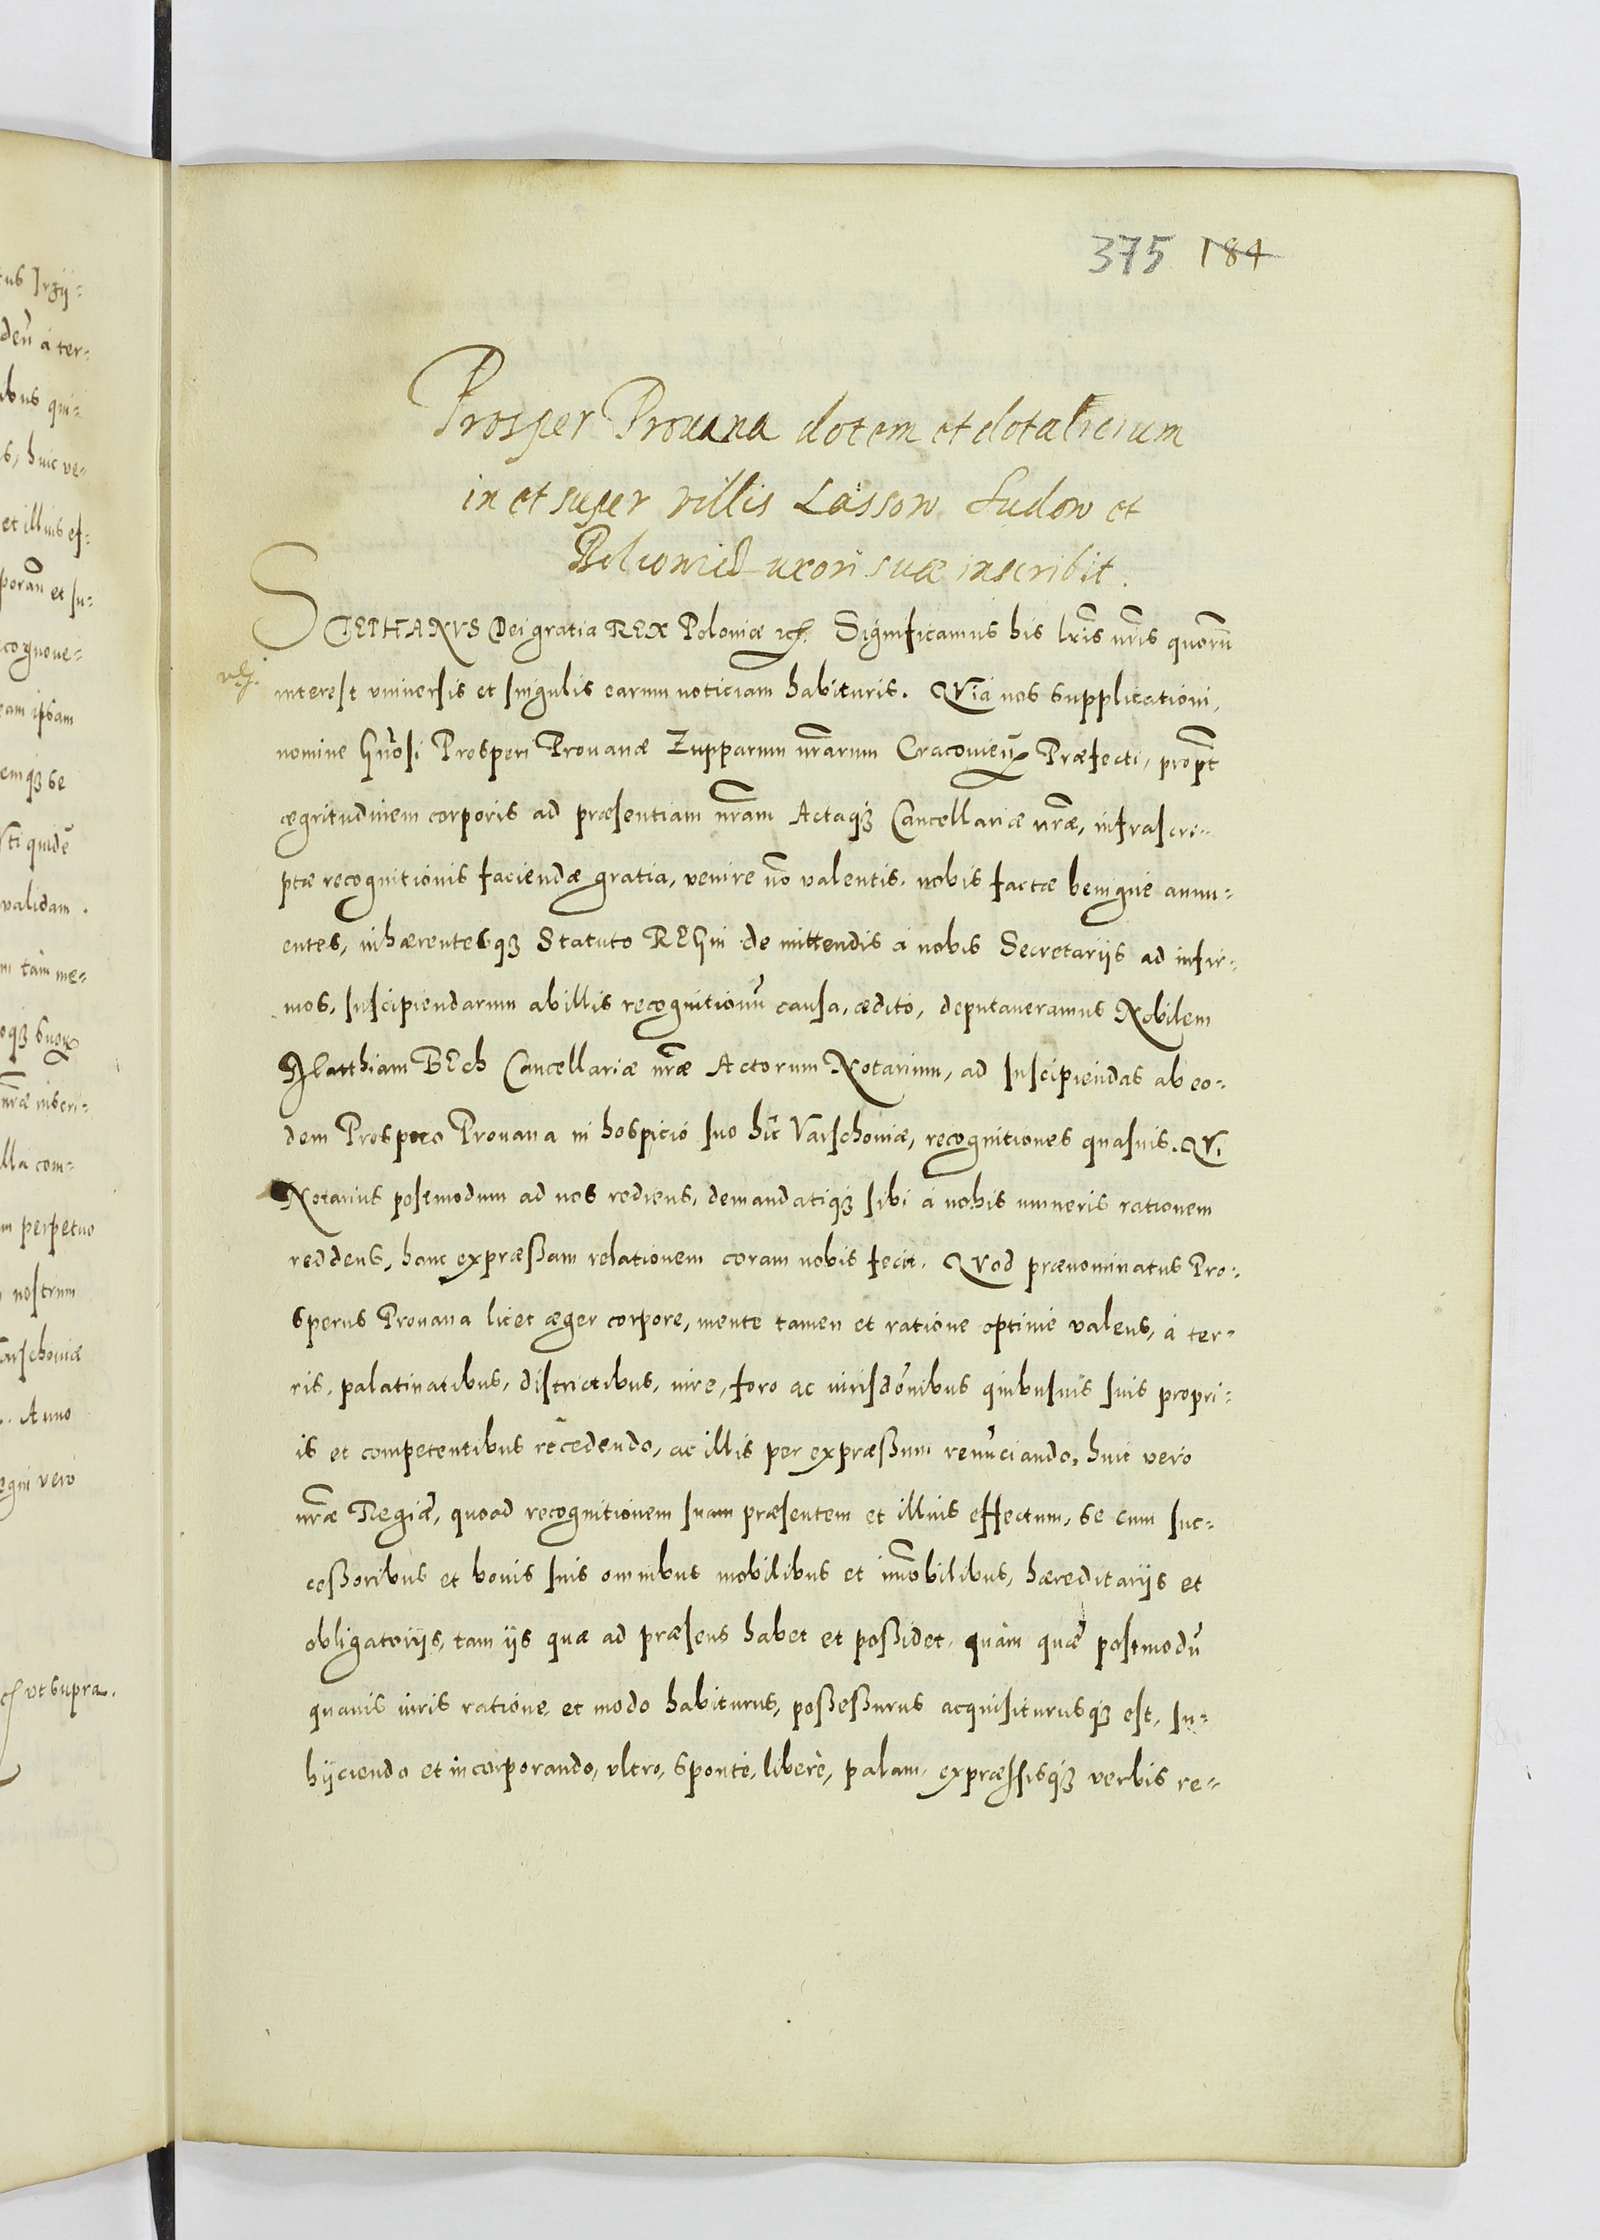 375 184
Prosper Prouana dotem et dotalicium
in et super villis Lasson Ludow et
uxori suæ inscribit.
STEPHANVS Dei gratia REX Poloniæ etc. Significamus his lrĩs nrĩs quorũ
interest vniuersis et singulis earum noticiam habituris. QVia nos supplicationi,
nomine Gñosi Prosperi Prouanæ Zupparum nrarum Cracouieñ Præfecti, propt̃
ægritudinem corporis ad præsentiam nram Actaqз Cancellariæ nræ, infrascri-
ptæ recognitionis faciendæ gratia, venire nõ valentis, nobis factæ benigne annu-
entes, inhærentesqз Statuto REGni de mittendis à nobis Secretariis ad infir-
mos, suscipiendarum ab illis recognitionũ causa, ædito, deputaueramus Nobilem
Matthiam BEch Cancellariæ nræ Actorum Notarium, ad suscipiendas ab eo-
dem Prospero Prouana in hospicio suo hîc Varschouiæ, recognitiones quasuis. QVi
Notarius postmodum ad nos rediens, demandatiqз sibi à nobis muneris rationem
reddens, hanc expræßam relationem coram nobis fecit. QVod prænominatus Pro-
sperus Prouana licet æger corpore, mente tamen et ratione optime valens, à ter-
ris, palatinatibus, districtibus, iure, foro ac iurisdõnibus quibusuis suis propri-
is et competentibus recedendo, ac illis per expræßum renũciando, huic vero
nræ Regiæ, quoad recognitionem suam præsentem et illius effectum, se cum suc-
ceßoribus et bonis suis omnibus mobilibus et im̃obilibus, hæreditariis et
obligatoriis, tam iis quæ ad præsens habet et poßidet, quàm quæ postmodũ
quauis iuris ratione et modo habiturus, poßeßurus acquisiturusqз est, su-
biiciendo et incorporando, vltro, sponte, liberè, palam, expræssisqз verbis re-